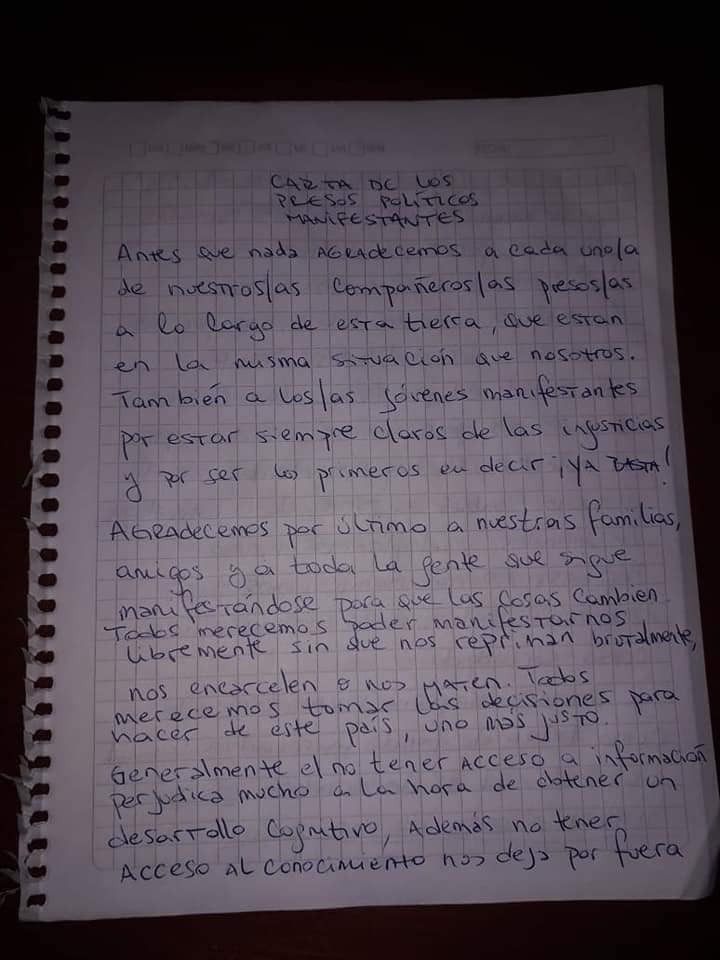 CARTA DE LOS
PRESOS POLÍTICOS
MANIFESTANTES
Antes que nada AGRADECEMOS a cada uno/a
de nuestros/as compañeros/as presos/as
a lo largo de esta tierra, que estan
en la misma situación que nosotros.
También a los/las jóvenes manifestantes
por estar siempre claros de las injusticias
y por ser los primeros en decir ¡YA BASTA!
AGRADECEMOS por último a nuestras familias,
amigos y a toda la gente que sigue
manifestándose para que las cosas cambien.
Todos merecemos poder manifestarnos
libremente sin que nos repriman brutalmente,
nos encarcelen o nos maten. Todos
merecemos tomar las decisiones para
hacer de este país, uno más justo.
Generalmente el no tener acceso a información
perjudica mucho a la hora de obtener un
desarrollo cognitivo, Además no tener
Acceso al conocimiento nos deja por fuera